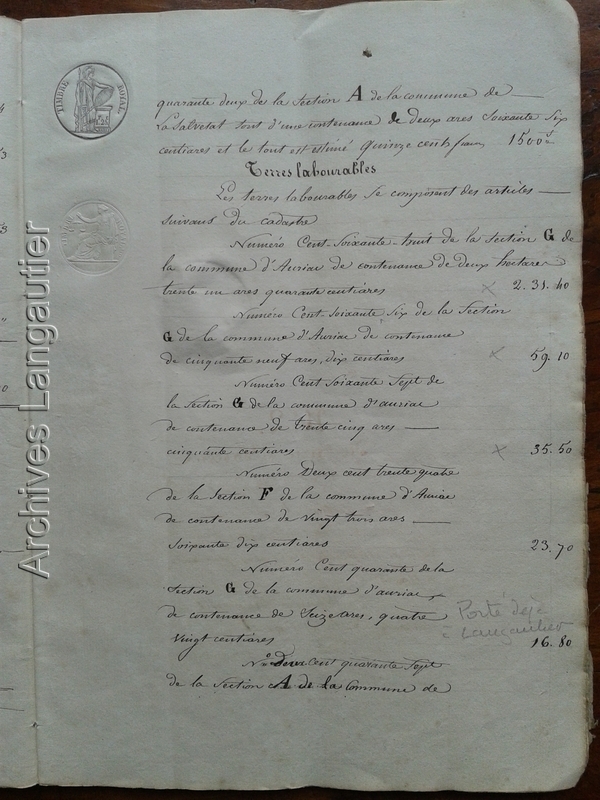 TIMBRE ROYAL
quarante deux de la section A de la commune de
La Salvetat tout d'une contenance de deux ares soixante six
centiares et le tout est estimé quinze cents francs 1500f
Terres labourables
Les terres labourables se composent des articles
suivans du cadastre
Numéro Cent-soixante-huit de la section G de
la commune d'Auriac de contenance de deux hectares
trente un ares quarante centiares x 2.31.40
Numéro Cent-soixante six de la section
G de la commune d'Auriac de contenance
de cinquante neuf ares, dix centiares x 59.10
Numéro Cent soixante sept de
la section G de la commune d'auriac
de contenance de trente cinq ares
cinquante centiares x 35.50
Numéro Deux cent trente quatre
de la section F de la commune d'Auriac
de contenance de vingt trois ares
soixante dix centiares 23.70
Numéro Cent quarante de la
section G de la commune d'auriac
de contenance de seize ares, quatre Porté déjà
vingt centiares à Langautier 16.80
No Deux cent quarante sept
de la section A de la commune de
Archives Langautier